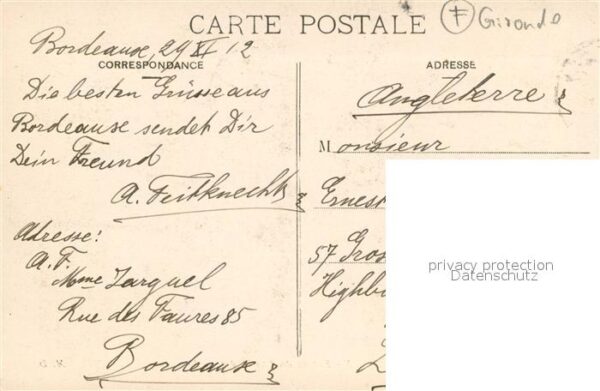 CARTE POSTALE
F Gironde
Bordeaux, 29 XI 12
CORRESPONDANCE
ADRESSE
Die besten Grüsse aus
Bordeaux sendet Dir
Dein Freund
A. Feitknecht
Adresse:
A. F.
Mme Larquel
Rue des Faures 85
Bordeaux
Angleterre
Monsieur
Ernes
57 Gros
Highb
privacy protection
Datenschutz